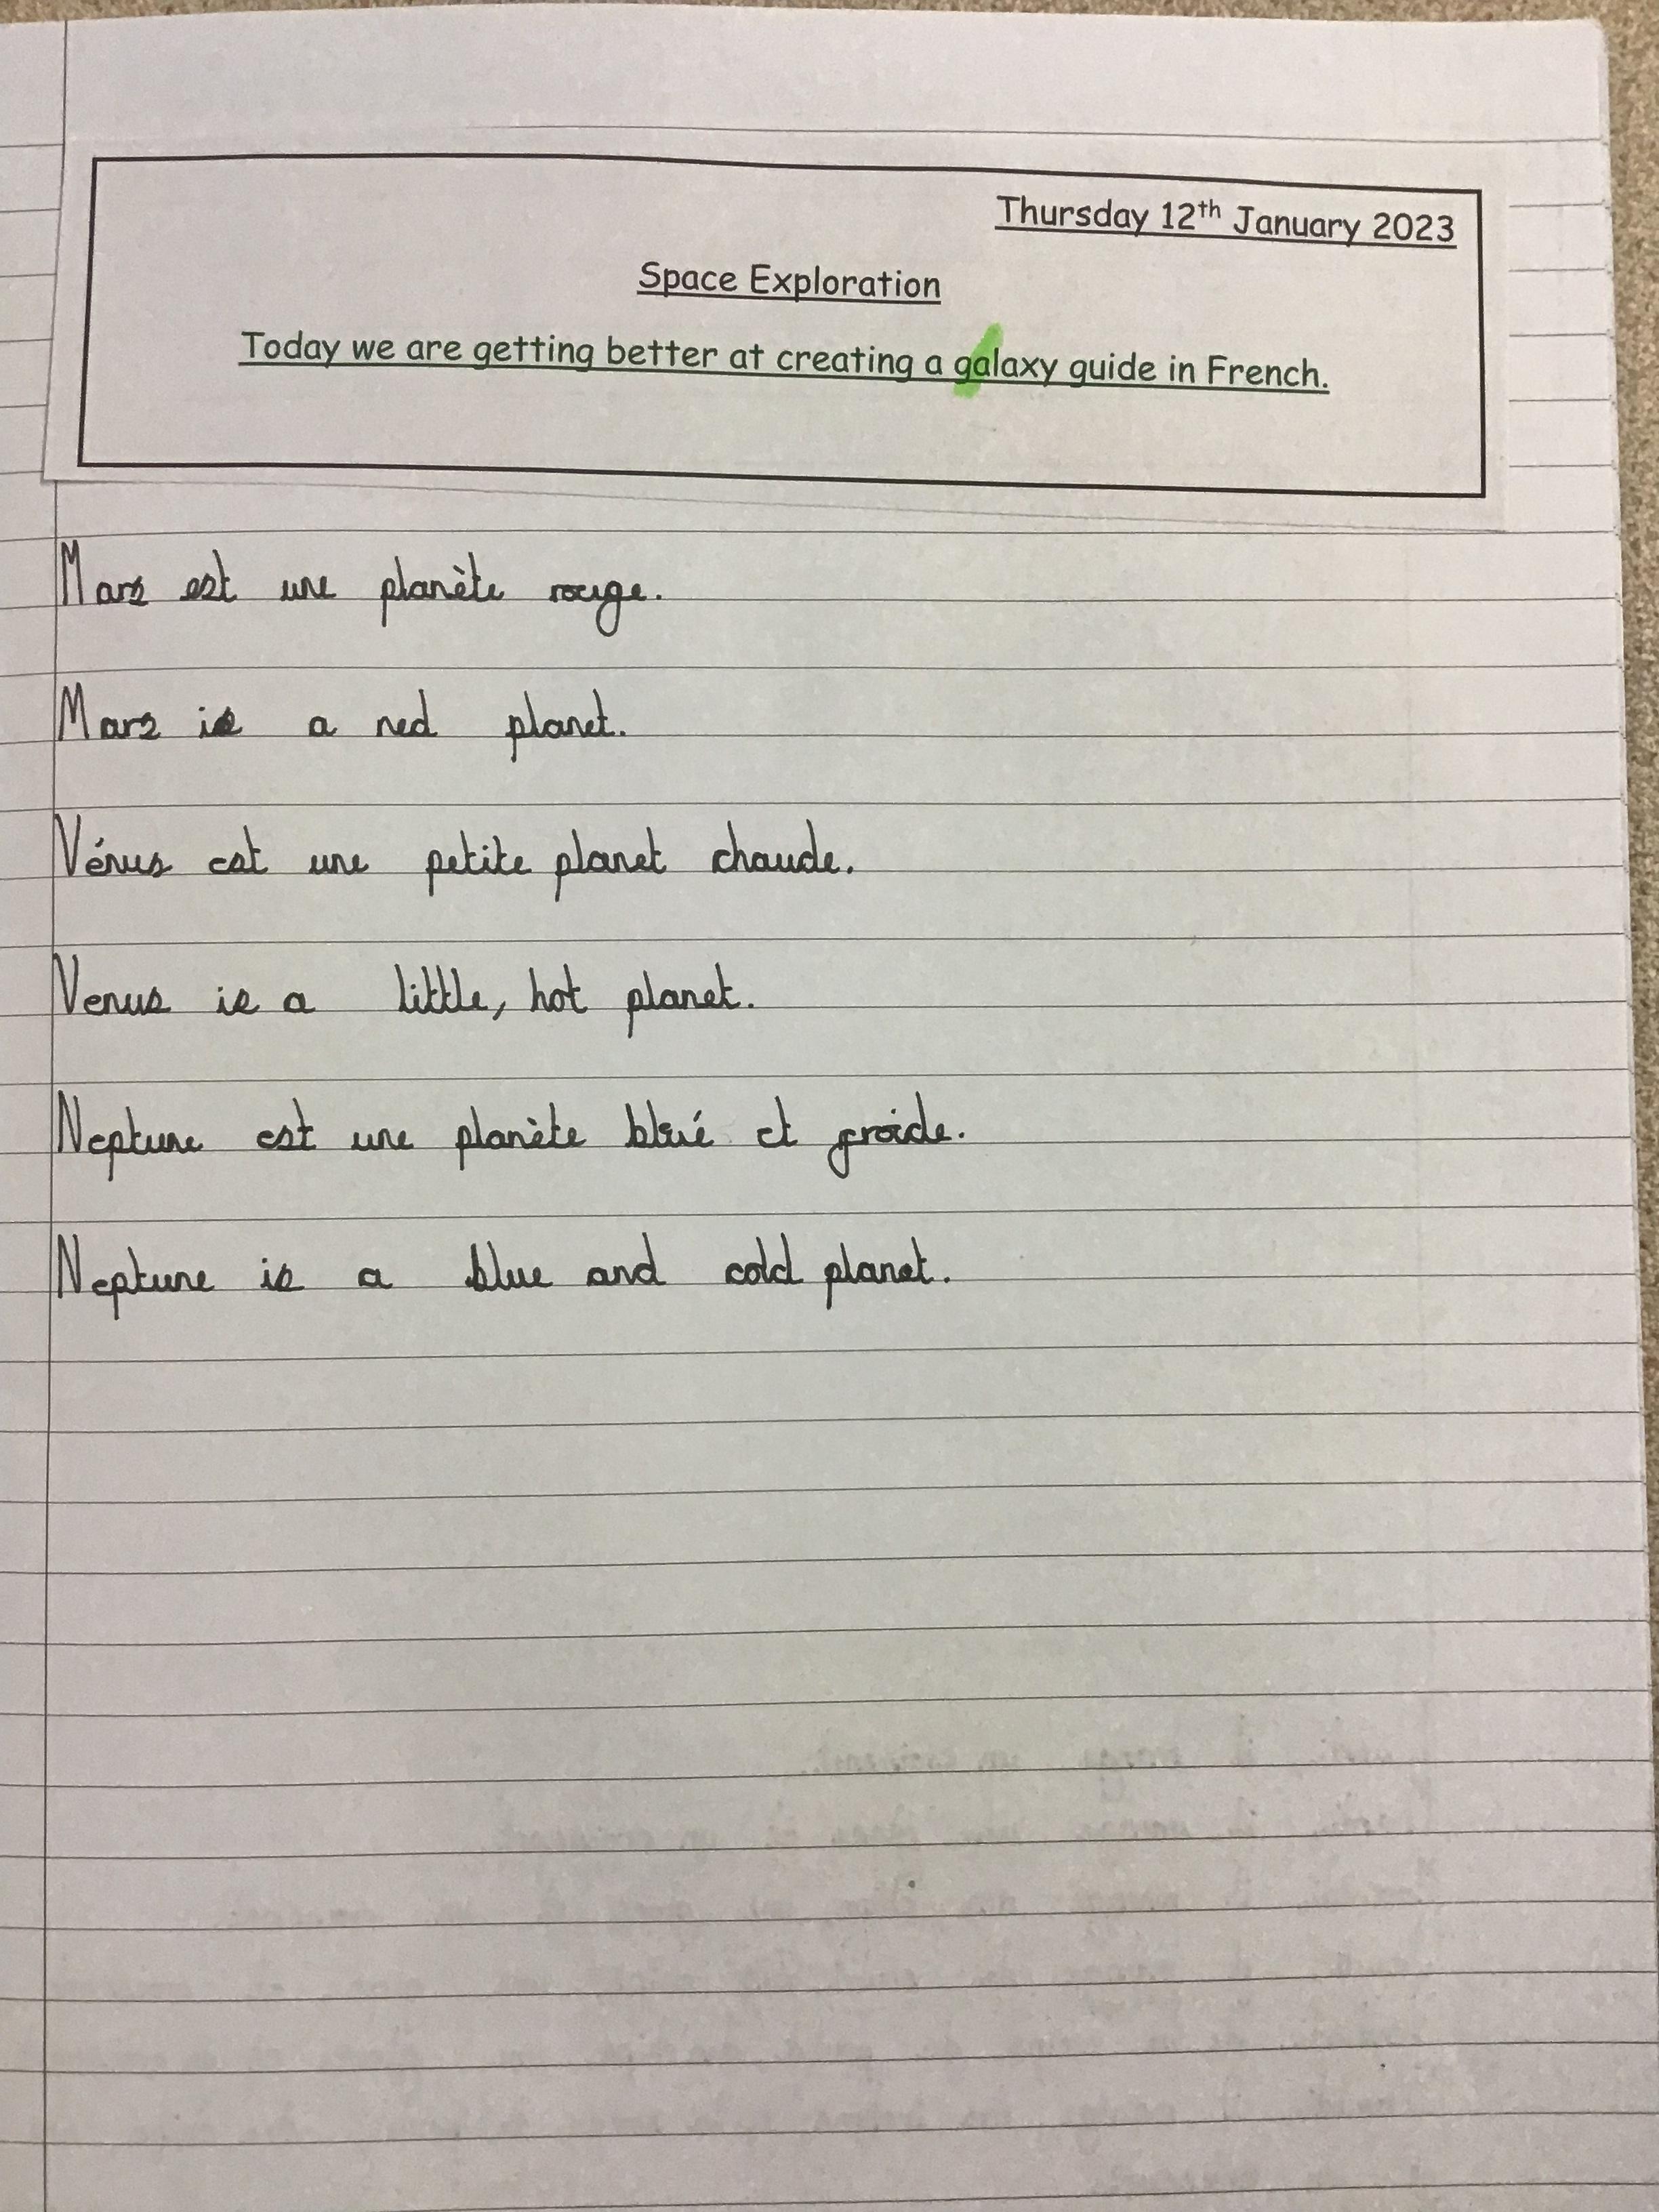 Thursday 12th January 2023
Space Exploration
Today we are getting better at creating a galaxy guide in French.
Mars est une planète rouge.
Mars is a red planet.
Vénus est une petite planet chaude.
Venus is a little, hot planet.
Neptune est une planète bleué et froide.
Neptune is a blue and cold planet.